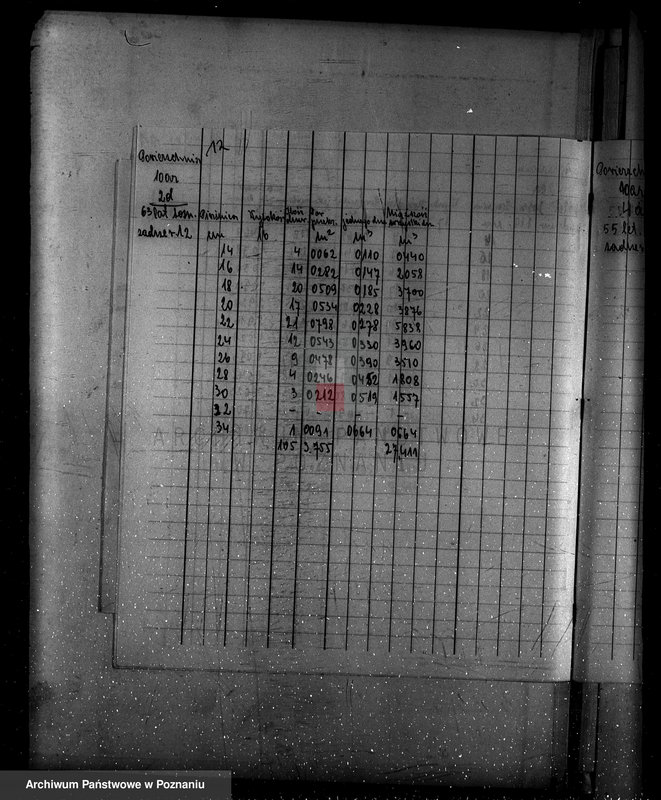 12
Powierzchnia
10 ar
2d
63 lat sosn.
zadrz. 12
Średnica cm
Wysokość 16
Ilość
m²
jednego drz. m³
m³
14 4 0062 0110 0440
16 14 0282 0147 2058
18 20 0509 0185 3700
20 17 0534 0228 3876
22 21 0798 0278 5838
24 12 0543 0330 3960
26 9 0478 0390 3510
28 4 0246 0452 1808
30 3 0212 0519 1557
32 - - - -
34 1 0091 0664 0664
105 3.755 27,411
Powierzch
10 ar
55 lat
ARCHIWUM PAŃSTWOWE
W POZNANIU
Archiwum Państwowe w Poznaniu